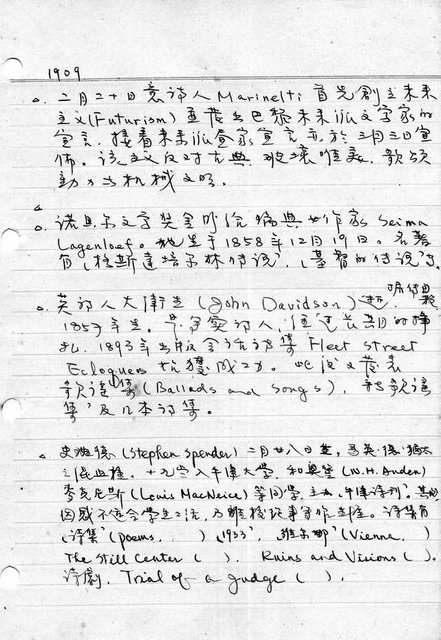 1909
二月二十日意詩人Marinelti首先創立未来
主义(Futurism)並發出巴黎未来派文学家的
宣言,接着未来派畫家宣言亦於三月三日宣
佈。该主义反对古典,破壞唯美,歌頌
動力与机械文明。
诺貝尔文学奖金时给瑞典女作家Selma
Lagenloef。她生于1858年12月19日。名著
有「格斯達培尔林传说」,「基督的传说」等。
英詩人大衛生(John Davidson)逝,
1857年生。早年穷詩人,但过长期的挣
扎,1893年出版会话詩集Fleet Street
Eclogues才獲成功。此後又發表
歌謠集(Ballads and Songs),新歌謠
集"及几本詩集。
史班德(Stephen Spender)二月廿八日生。為英.德.猶太
之混血種。十九岁入牛津大学,和奥登(W.H. Auden)
麥克尼斯(Louis MacNeice)等同学,主办"牛津詩刊",
因感不适合学生生活,乃離校從事写作生涯。诗集有
「诗集」(Poems, )1933, 维也纳"(Vienna, )
The Still Center ( ). Ruins and Visions ( ).
诗劇, Trial of a Judge ( ).